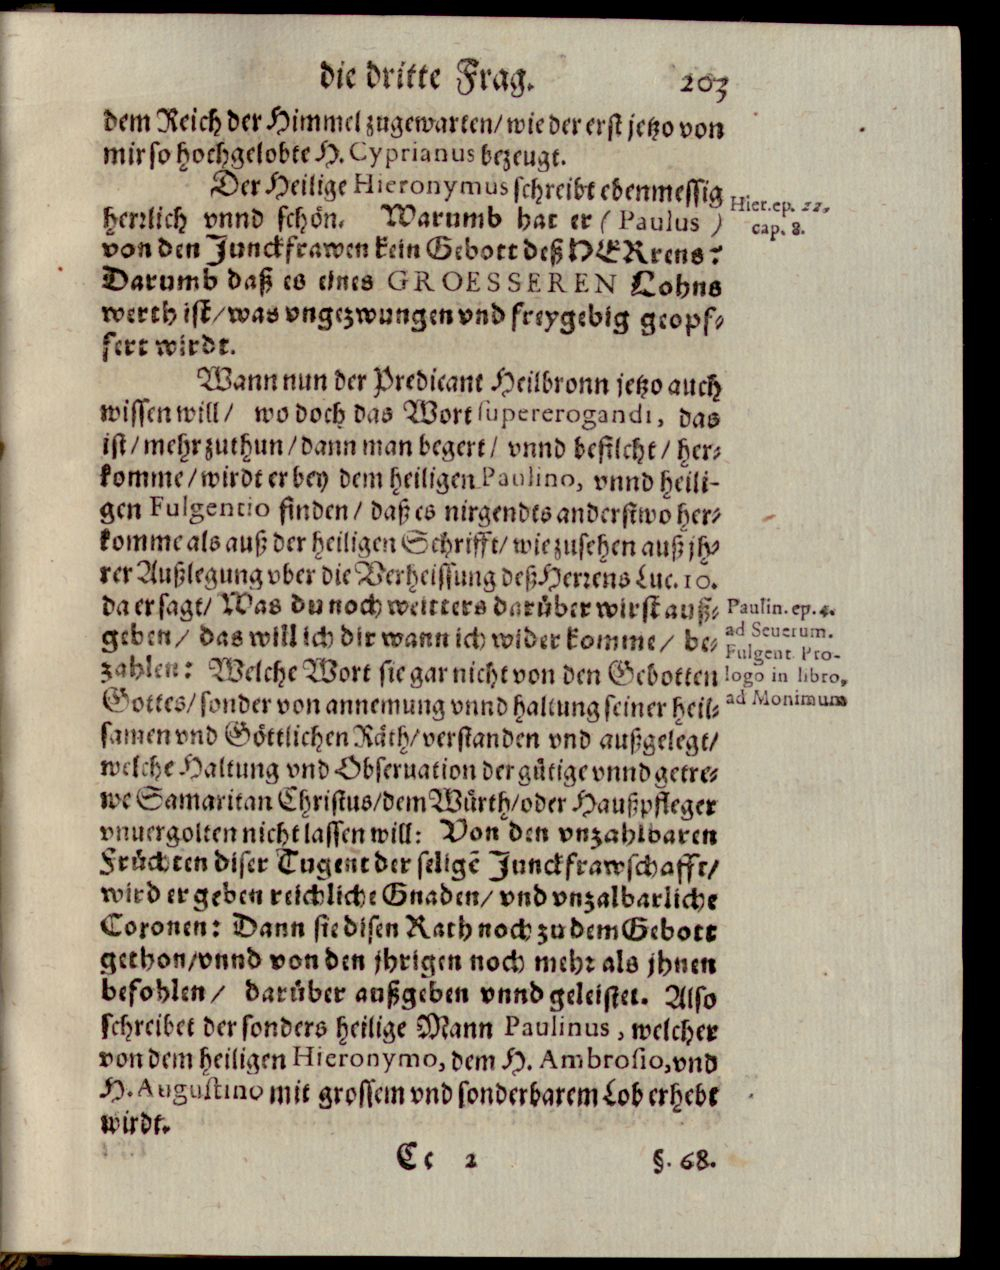 die dritte Frag. 203
dem Reich der Himmel zugewarten/ wie der erst jetzo von
mir so hochgelobte H. Cyprianus bezeugt.
Der Heilige Hieronymus schreibt ebenmessig
herrlich vnnd schön. Warumb hat er ( Paulus )
von den Junckfrawen kein Gebott deß HERrens?
Darumb daß es eines GROESSEREN Lohns
werth ist/ was vngezwungen vnd freygebig geopf-
fert wirdt.
Hier. ep. 22.
cap. 8.
Wann nun der Predicant Heilbronn jetzo auch
wissen will/ wo doch das Wort supererogandi, das
ist/ mehr zuthun/ dann man begert/ vnnd befilcht/ her-
komme/ wirdt er bey dem heiligen Paulino, vnnd heili-
gen Fulgentio finden/ daß es nirgendts anderstwo her-
komme als auß der heiligen Schrifft/ wie zusehen auß jh-
rer Außlegung vber die Verheissung deß Herrens Luc. 10.
da er sagt/ Was du noch weitters darüber wirst auß-
geben/ das will ich dir wann ich wider komme/ be-
zahlen: Welche Wort sie gar nicht von den Gebotten
Gottes/ sonder von annemung vnnd haltung seiner heil-
samen vnd Göttlichen Räth/ verstanden vnd außgelegt/
welche Haltung vnd Obseruation der gütige vnnd getre-
we Samaritan Christus/ dem Würth/ oder Haußpfleger
vnuergolten nicht lassen will: Von den vnzahlbaren
Früchten diser Tugent der seligẽ Junckfrawschafft/
wird er geben reichliche Gnaden/ vnd vnzalbarliche
Coronen: Dann sie disen Rath noch zu dem Gebott
gethon/ vnnd von den jhrigen noch mehr als jhnen
befohlen/ darüber außgeben vnnd geleistet. Also
schreibet der sonders heilige Mann Paulinus, welcher
von dem heiligen Hieronymo, dem H. Ambrosio, vnd
H. Augustino mit grossem vnd sonderbarem Lob erhebt
wirdt.
Paulin. ep. 4.
ad Seuerum.
Fulgent. Pro-
logo in libro,
ad Monimum
Cc 2 §. 68.